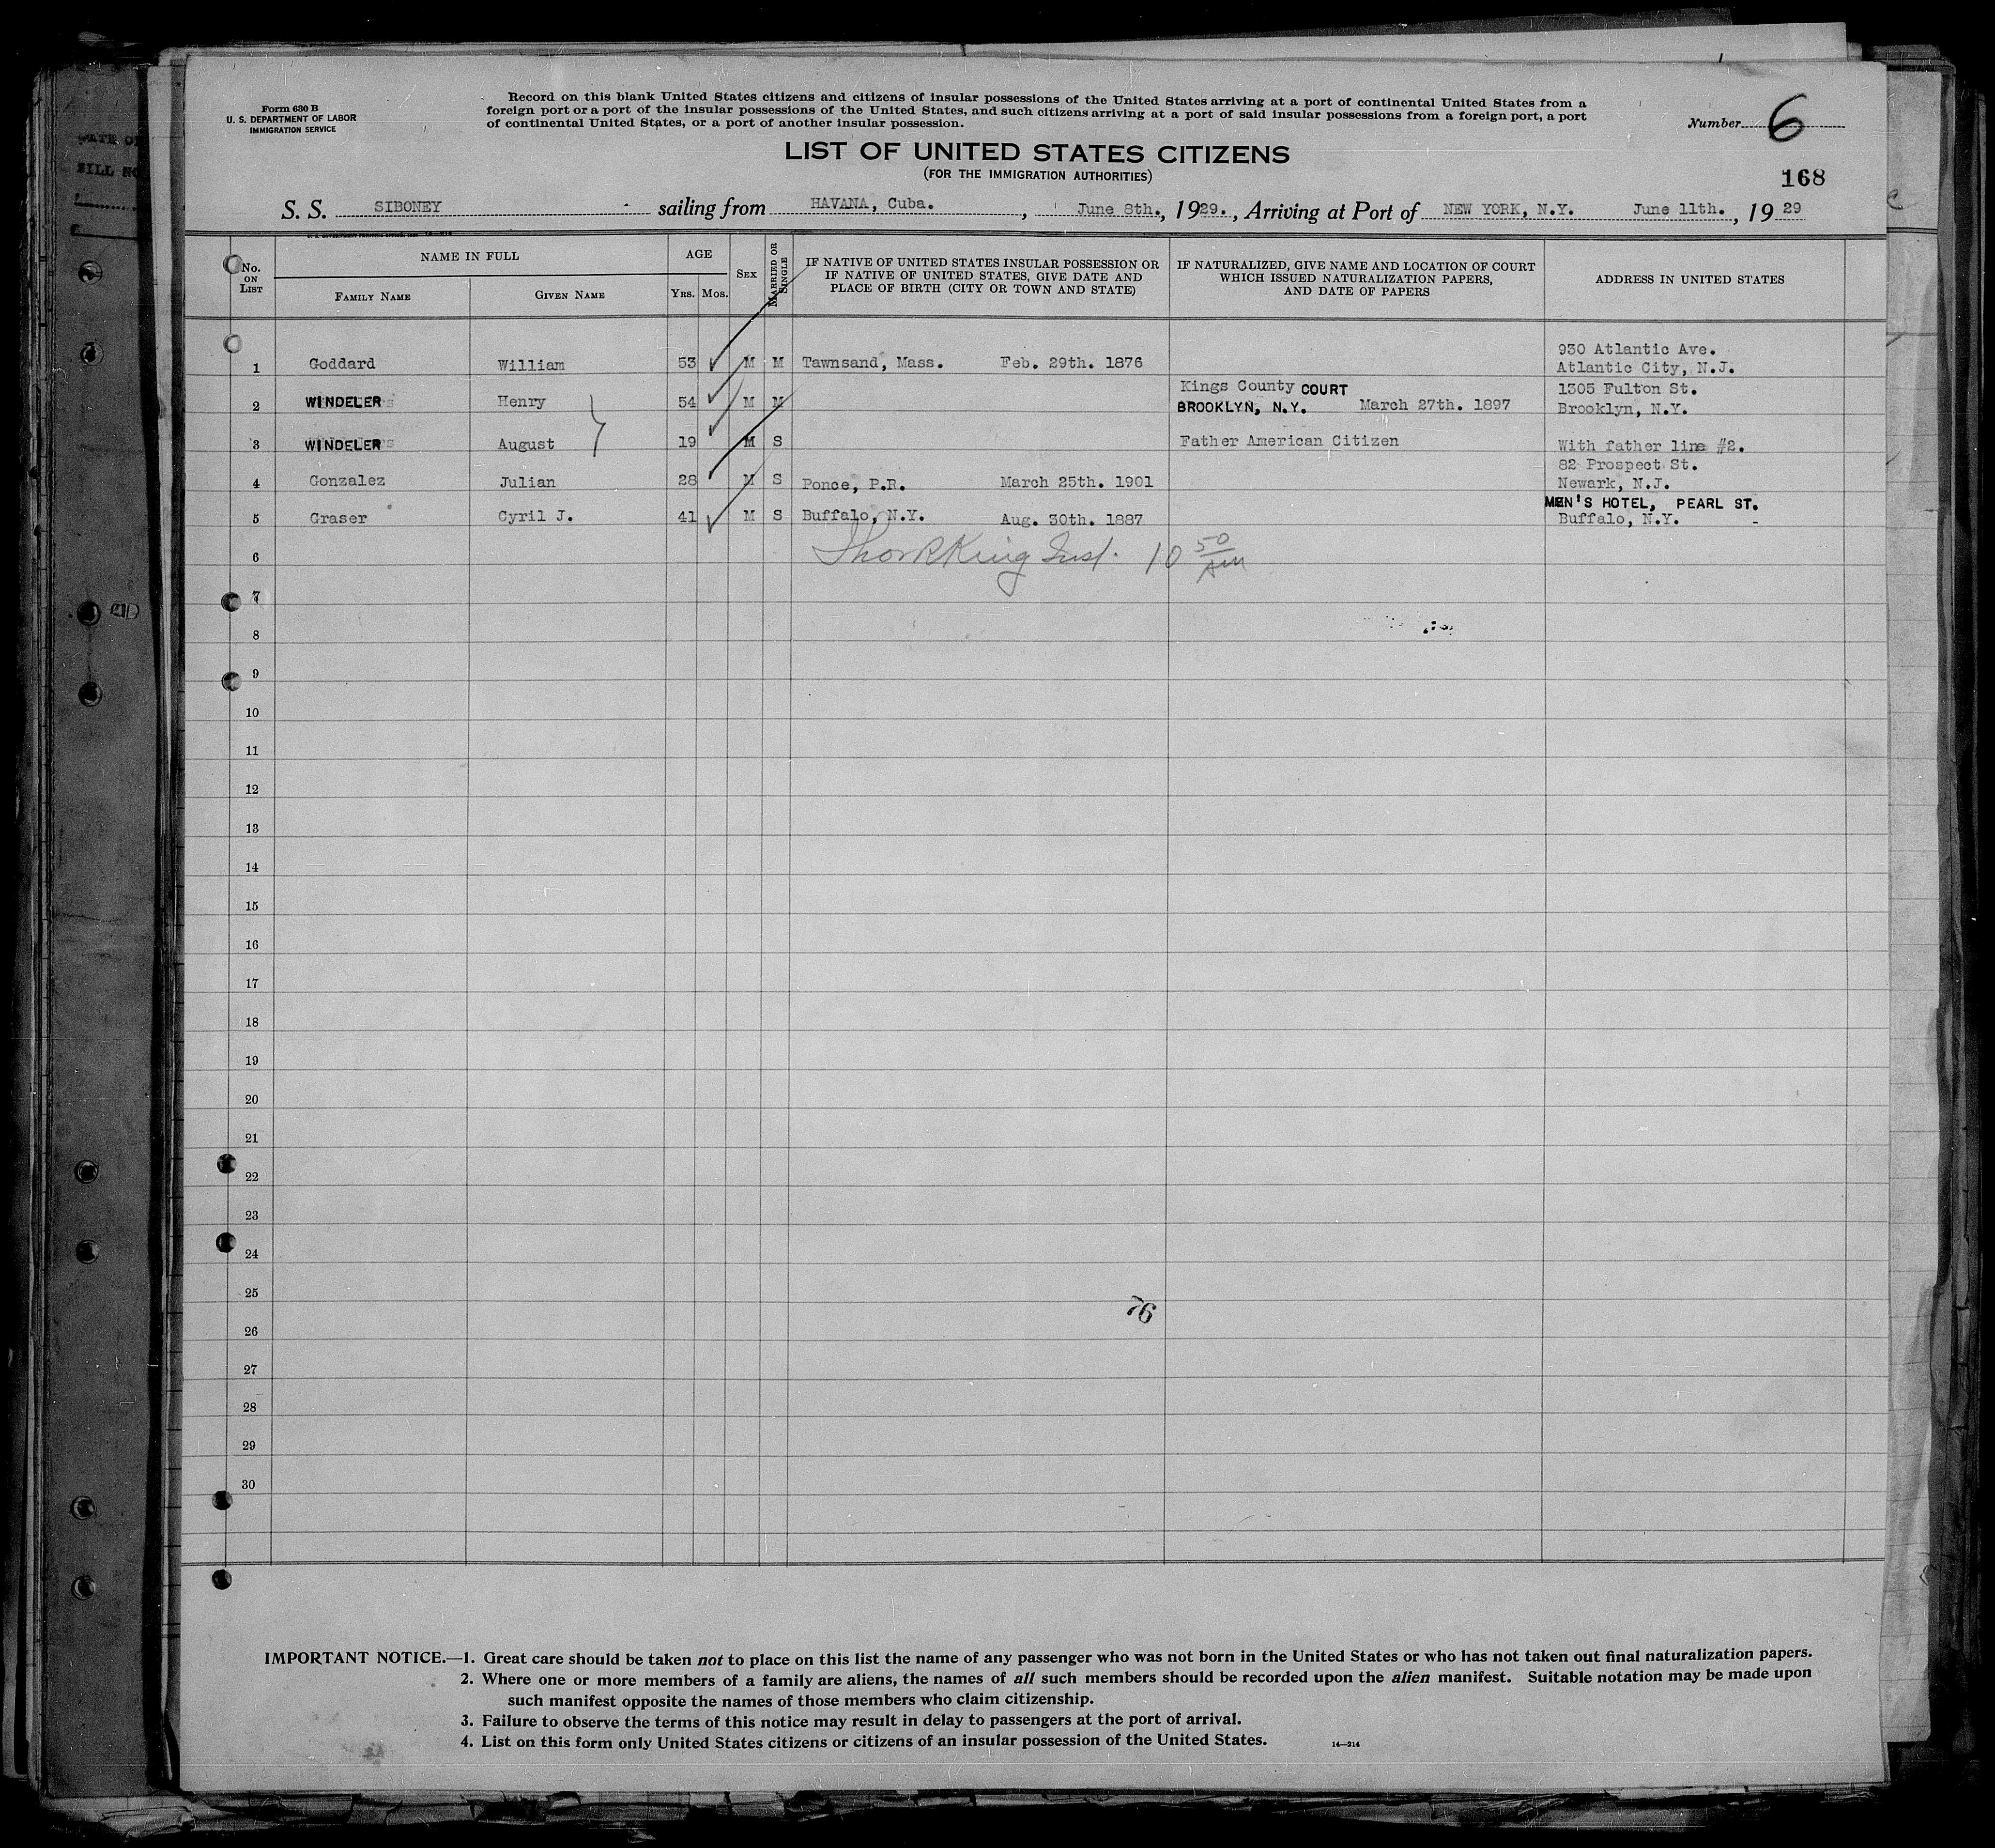 Form 630 B
U. S. DEPARTMENT OF LABOR
IMMIGRATION SERVICE
Record on this blank United States citizens and citizens of insular possessions of the United States arriving at a port of continental United States from a
foreign port or a port of the insular possessions of the United States, and such citizens arriving at a port of said insular possessions from a foreign port, a port
of continental United States, or a port of another insular possession.
Number 6
LIST OF UNITED STATES CITIZENS
(FOR THE IMMIGRATION AUTHORITIES)
168
S. S. SIBONEY sailing from HAVANA, Cuba. , June 8th., 1929. , Arriving at Port of NEW YORK, N.Y. June 11th. , 19 29
No. ON LIST
NAME IN FULL
FAMILY NAME
GIVEN NAME
AGE
YRS. MOS.
SEX
MARRIED OR SINGLE
IF NATIVE OF UNITED STATES INSULAR POSSESSION OR
IF NATIVE OF UNITED STATES, GIVE DATE AND
PLACE OF BIRTH (CITY OR TOWN AND STATE)
IF NATURALIZED, GIVE NAME AND LOCATION OF COURT
WHICH ISSUED NATURALIZATION PAPERS,
AND DATE OF PAPERS
ADDRESS IN UNITED STATES
930 Atlantic Ave.
1 Goddard William 53 M M Tawnsand, Mass. Feb. 29th. 1876 Atlantic City, N.J.
Kings County COURT 1305 Fulton St.
2 WINDELER Henry 54 M M BROOKLYN, N.Y. March 27th. 1897 Brooklyn, N.Y.
3 WINDELER August 19 M S Father American Citizen With father line #2.
82 Prospect St.
4 Gonzalez Julian 28 M S Ponce, P.R. March 25th. 1901 Newark, N.J.
MEN'S HOTEL, PEARL ST.
5 Graser Cyril J. 41 M S Buffalo, N.Y. Aug. 30th. 1887 Buffalo, N.Y.
6 King Insp. 10 50 AM
7
8
9
10
11
12
13
14
15
16
17
18
19
20
21
22
23
24
25
76
26
27
28
29
30
IMPORTANT NOTICE.—1. Great care should be taken not to place on this list the name of any passenger who was not born in the United States or who has not taken out final naturalization papers.
2. Where one or more members of a family are aliens, the names of all such members should be recorded upon the alien manifest. Suitable notation may be made upon
such manifest opposite the names of those members who claim citizenship.
3. Failure to observe the terms of this notice may result in delay to passengers at the port of arrival.
4. List on this form only United States citizens or citizens of an insular possession of the United States.
14—214